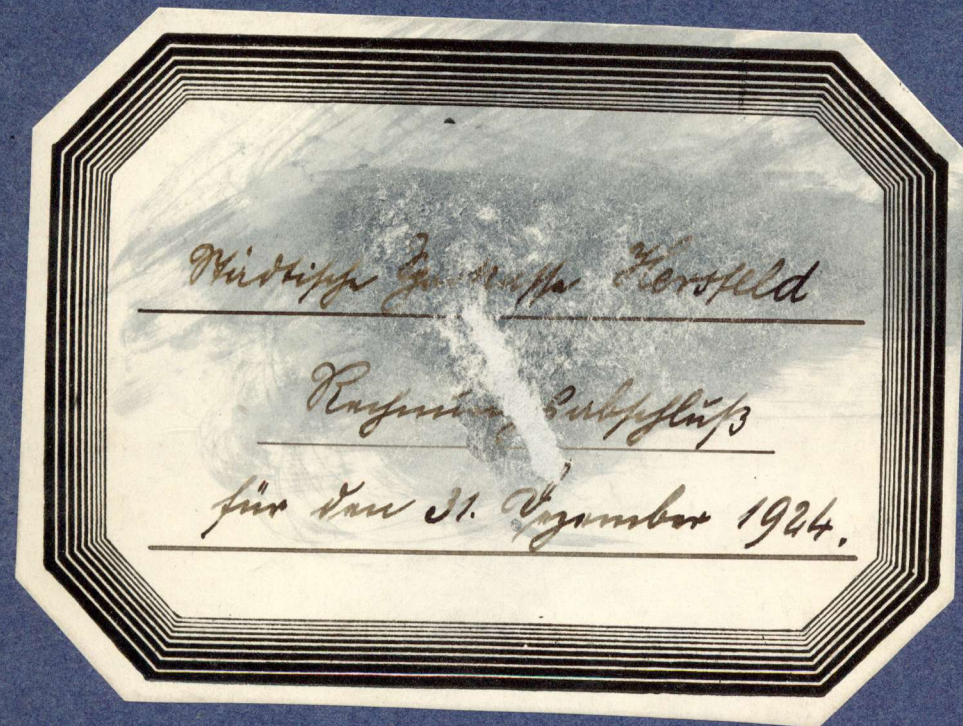 Städtische Sparkasse Hersfeld
Rechnungsabschluß
für den 31. Dezember 1924.